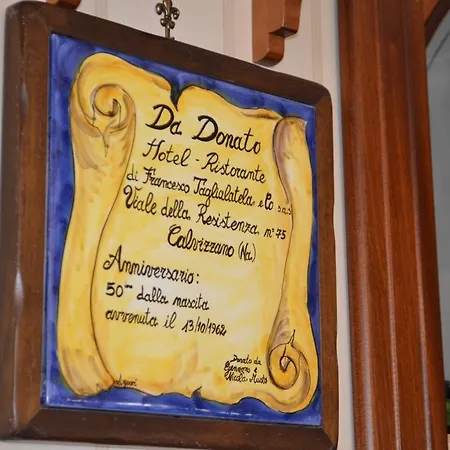 Da Donato
Hotel - Ristorante
di Francesco Taglialatela e Co s.a.s
Viale della Resistenza n° 75
Calvizzano (Na)
Anniversario:
50mo dalla nascita
avvenuta il 13/10/1962
Donato da
Gennaro e
Nicola Musto